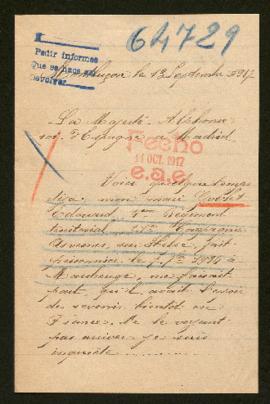 64729
Pedir informes
Que se haga
devolver
le 13 Septembre 1917
Sa Majesté Alphonse
roi d'Espagne à Madrid
Fecho
11 OCT. 1917
e.a.e.
Voici quelque temps
déjà, mon mari
Edouard, 1er Régiment
territorial, Compagnie
fait
prisonnier le 7 7bre 1914 à
Maubeuge, me faisait
part qu'il avait l'espoir
de revenir bientôt en
France. Ne le voyant
pas arriver je suis
inquiète